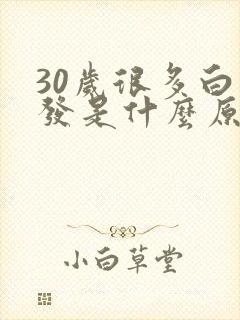 30歲很多白
發是什麼原
小白草堂